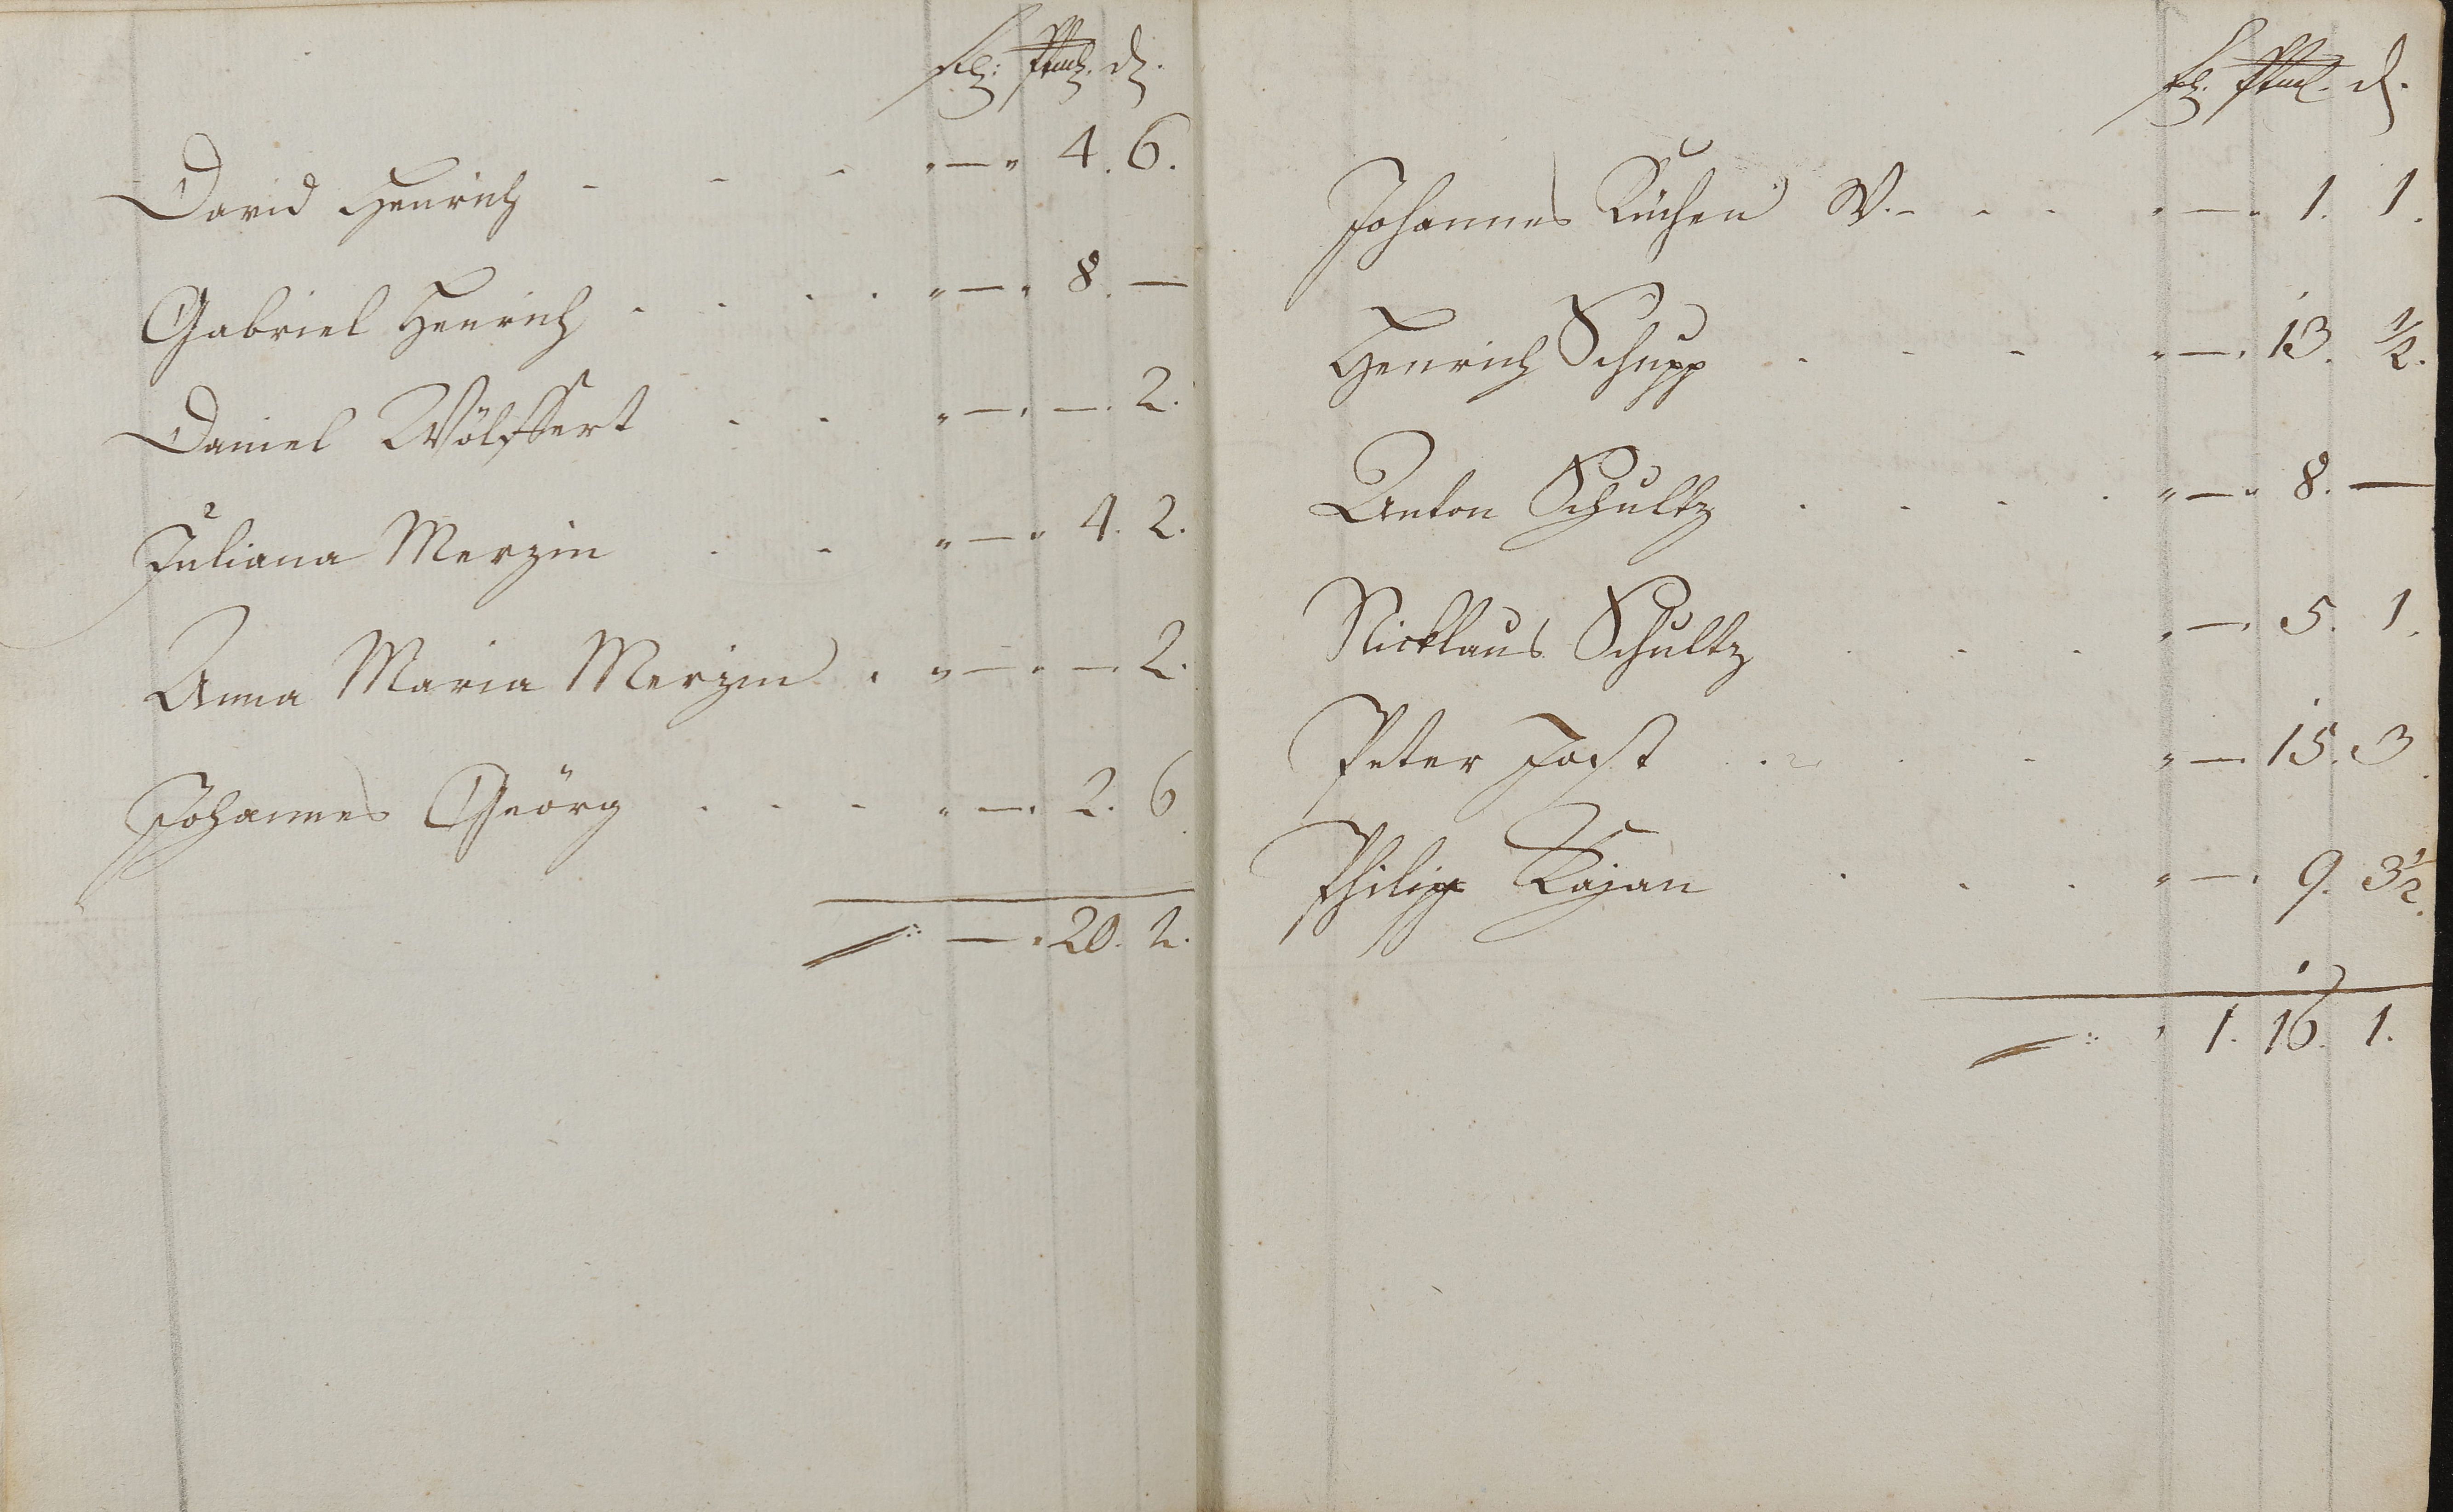 David Henrich - - - " — " 4. 6.
Gabriel Henrich . . . . " — " 8. —
Daniel Wölffert . . " — . — . 2.
Juliana Merzin . . " — " 4. 2.
Anna Maria Merzin . " — " — 2.
Johannes Geörg . . . " — . 2. 6
— . 20. 2.
Johannes Küchen W. - - - " — " 1. 1.
Henrich Schupp . - - " — . 13. 1/2.
Anton Schultz . . . . " — " 8. —
Nicklaus Schultz . . . " — . 5. 1.
Peter Jost . . . " — . 15. 3
Philip Kajan . . . " — . 9. 3 1/2.
1. 16. 1.